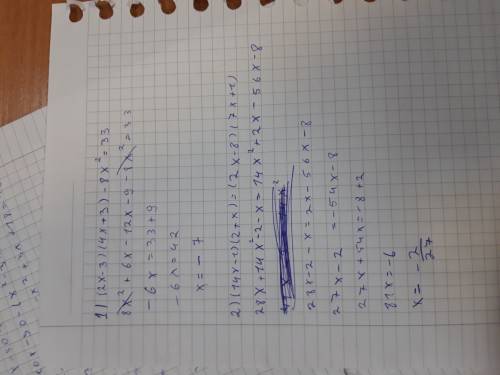 1) (2x-3)(4x+3) - 8x² = 33
8x² + 6x - 12x - 9 - 8x² = 33
-6x = 33+9
-6x = 42
x = -7
2) (14x-1)(2+x) = (2x-8)(7x+1)
28x + 14x² - 2 - x = 14x² + 2x - 56x - 8
28x - 2 - x = 2x - 56x - 8
27x - 2 = -54x - 8
27x + 54x = -8 + 2
81x = -6
x = -2/27